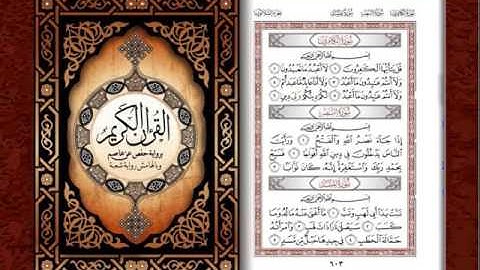 القرآن الكريم
برواية حفص عن عاصم
وبالهامش رواية شعبة
سُورَةُ الكَافِرُونَ
بِسْمِ ٱللَّهِ ٱلرَّحْمَٰنِ ٱلرَّحِيمِ
قُلْ يَٰٓأَيُّهَا ٱلْكَٰفِرُونَ ١ لَآ أَعْبُدُ مَا تَعْبُدُونَ ٢
وَلَآ أَنتُمْ عَٰبِدُونَ مَآ أَعْبُدُ ٣ وَلَآ أَنَا۠ عَابِدٌ مَّا عَبَدتُّمْ ٤
وَلَآ أَنتُمْ عَٰبِدُونَ مَآ أَعْبُدُ ٥ لَكُمْ دِينُكُمْ وَلِىَ دِينِ ٦
سُورَةُ النَّصْرِ
بِسْمِ ٱللَّهِ ٱلرَّحْمَٰنِ ٱلرَّحِيمِ
إِذَا جَآءَ نَصْرُ ٱللَّهِ وَٱلْفَتْحُ ١ وَرَأَيْتَ
ٱلنَّاسَ يَدْخُلُونَ فِى دِينِ ٱللَّهِ أَفْوَاجًا ٢ فَسَبِّحْ
بِحَمْدِ رَبِّكَ وَٱسْتَغْفِرْهُ إِنَّهُۥ كَانَ تَوَّابًۢا ٣
سُورَةُ المَسَدِ
بِسْمِ ٱللَّهِ ٱلرَّحْمَٰنِ ٱلرَّحِيمِ
تَبَّتْ يَدَآ أَبِى لَهَبٍ وَتَبَّ ١ مَآ أَغْنَىٰ عَنْهُ مَالُهُۥ وَمَا
كَسَبَ ٢ سَيَصْلَىٰ نَارًا ذَاتَ لَهَبٍ ٣ وَٱمْرَأَتُهُۥ
حَمَّالَةَ ٱلْحَطَبِ ٤ فِى جِيدِهَا حَبْلٌ مِّن مَّسَدٍۭ ٥
٦٠٣